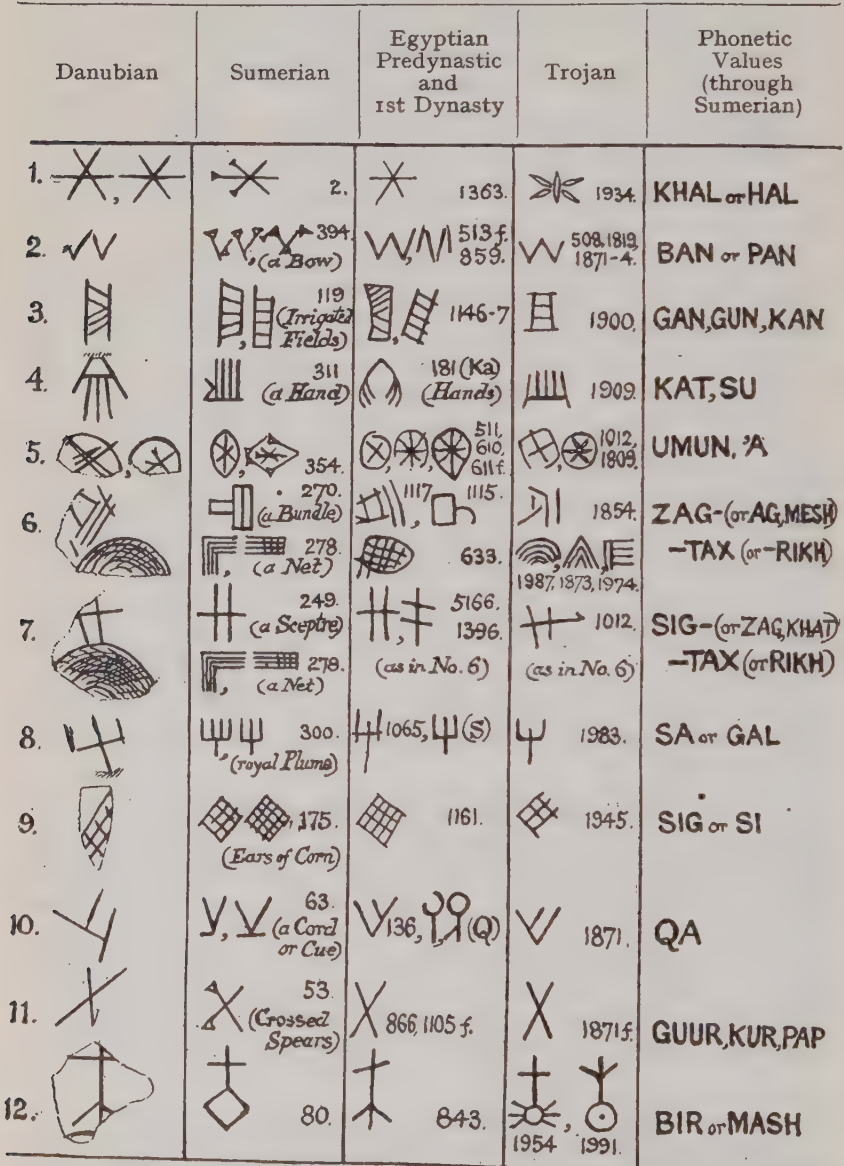 Danubian Sumerian Egyptian Predynastic and 1st Dynasty Trojan Phonetic Values (through Sumerian)
1. , 2. 1363. 1934. KHAL or HAL
2. , , 394. (a Bow) , 513 f. 859. 508, 1819, 1871-4. BAN or PAN
3. , 119 (Irrigated Fields) , 1146-7 1900. GAN, GUN, KAN
4. 311 (a Hand) 181 (Ka) (Hands) 1909. KAT, SU
5. , , 354. , , 511, 610, 611 f. , 1012, 1809. UMUN, 'A
6. 270. (a Bundle) 1117, 1115. 1854. ZAG-(or AG, MESH)
, 278. (a Net) 633. , , 1987, 1873, 1974. -TAX (or -RIKH)
7. 249. (a Sceptre) , 5166. 1396. 1012. SIG-(or ZAG, KHAT)
, 278. (a Net) (as in No. 6) (as in No. 6) -TAX (or RIKH)
8. , 300. (royal Plume) 1065, (S) 1983. SA or GAL
9. , 175. (Ears of Corn) 1161. 1945. SIG or SI
10. , 63. (a Cord or Cue) 136, , (Q) 1871. QA
11. 53. (Crossed Spears) 866, 1105 f. 1871 f. GUUR, KUR, PAP
12. 80. 843. 1954 , 1991. BIR or MASH